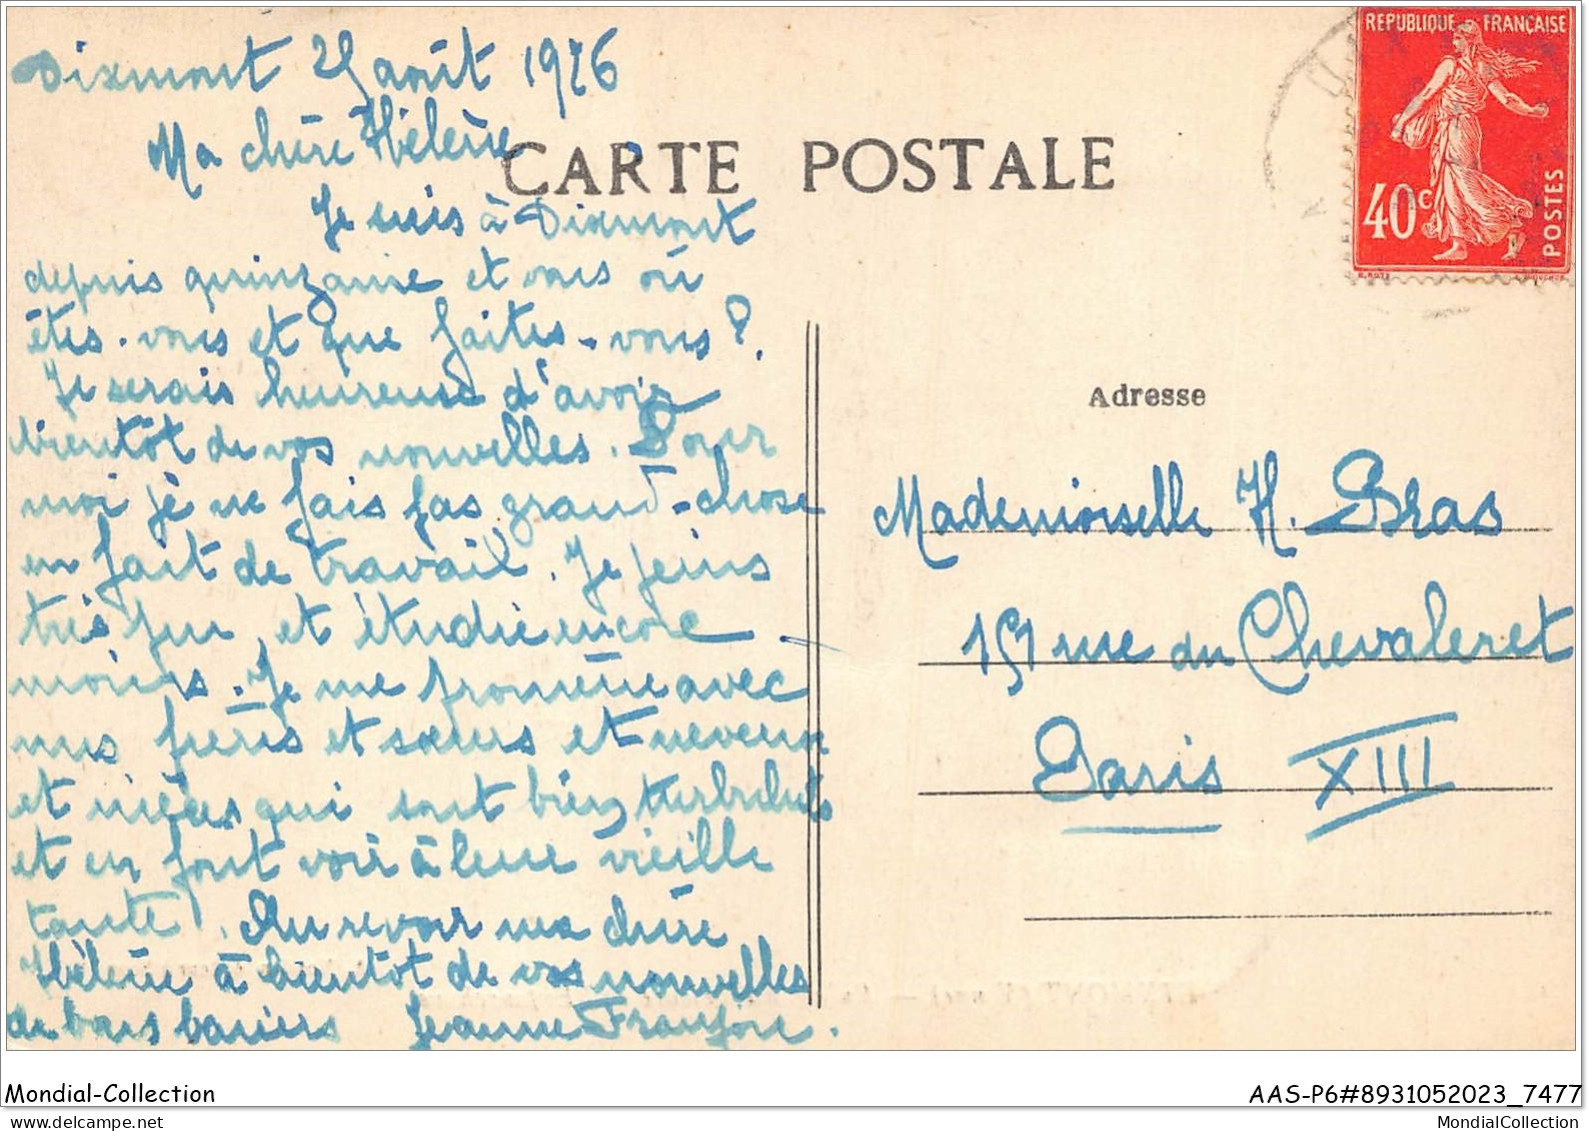 Dixmont 25 août 1926
Ma chère Hélène,
CARTE POSTALE
Je suis à Dixmont
depuis quinzaine et vous où
êtes-vous et que faites-vous?
Je serais heureuse d'avoir
bientôt de vos nouvelles. Pour
moi je ne fais pas grand-chose
en fait de travail. Je peins
très peu et étudie encore
moins. Je me promène avec
mes frères et sœurs et neveux
et nièces qui sont bien turbulents
et en font voir à leur vieille
tante! Au revoir ma chère
Hélène à bientôt de vos nouvelles
de bons baisers Jeanne
REPUBLIQUE FRANÇAISE
40c
POSTES
Adresse
Mademoiselle H. Bras
151 rue du Chevaleret
Paris XIII
Mondial-Collection
AAS-P6#8931052023_7477
MondialCollection